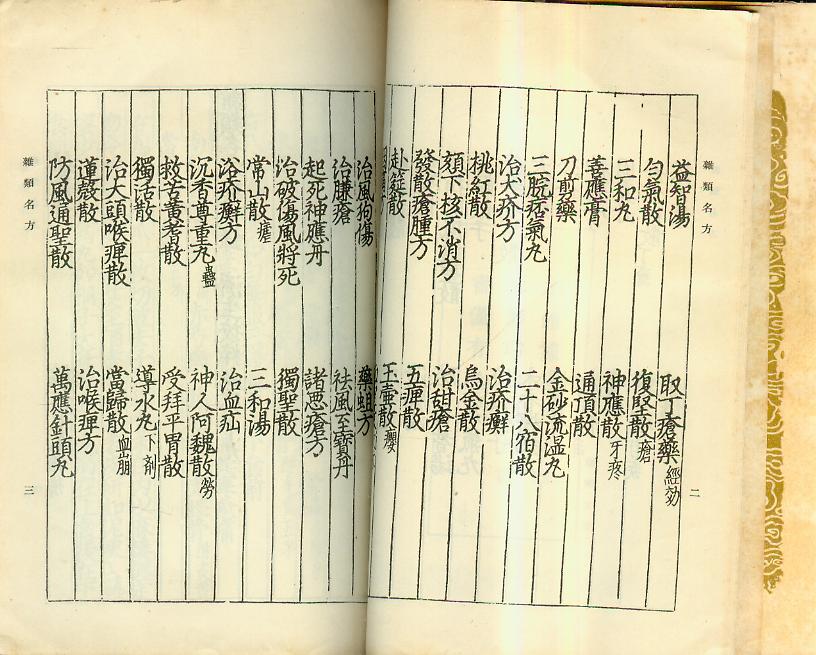 雜類名方 二
益智湯 取丁瘡藥 經効
勻氣散 復堅散 瘡
三和丸 神應散 牙疼
善應膏 通頂散
刀剪藥 金砂流湿丸
三脘痞氣丸 二十八宿散
治大疥方 治疥癬
桃紅散 烏金散
頦下核不消方 治甜瘡
發散瘡腫方 五痺散
赴筵散 玉壷散 癭
治風狗傷 藥蛆方
治臁瘡 祛風至寶丹
起死神應丹 諸悪瘡方
治破傷風將死 獨聖散
常山散 瘧 三和湯
浴疥癬方 治血疝
沉香尊重丸 蠱 神人阿魏散 勞
救苦黃耆散 受拜平胃散
獨活散 導水丸 下剤
治大頭喉痺散 當歸散 血崩
蓮殼散 治喉痺方
防風通聖散 萬應針頭丸
雜類名方 三